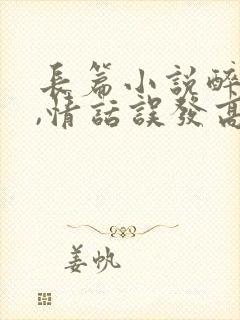 長篇小說醉
,情話誤發高
姜帆